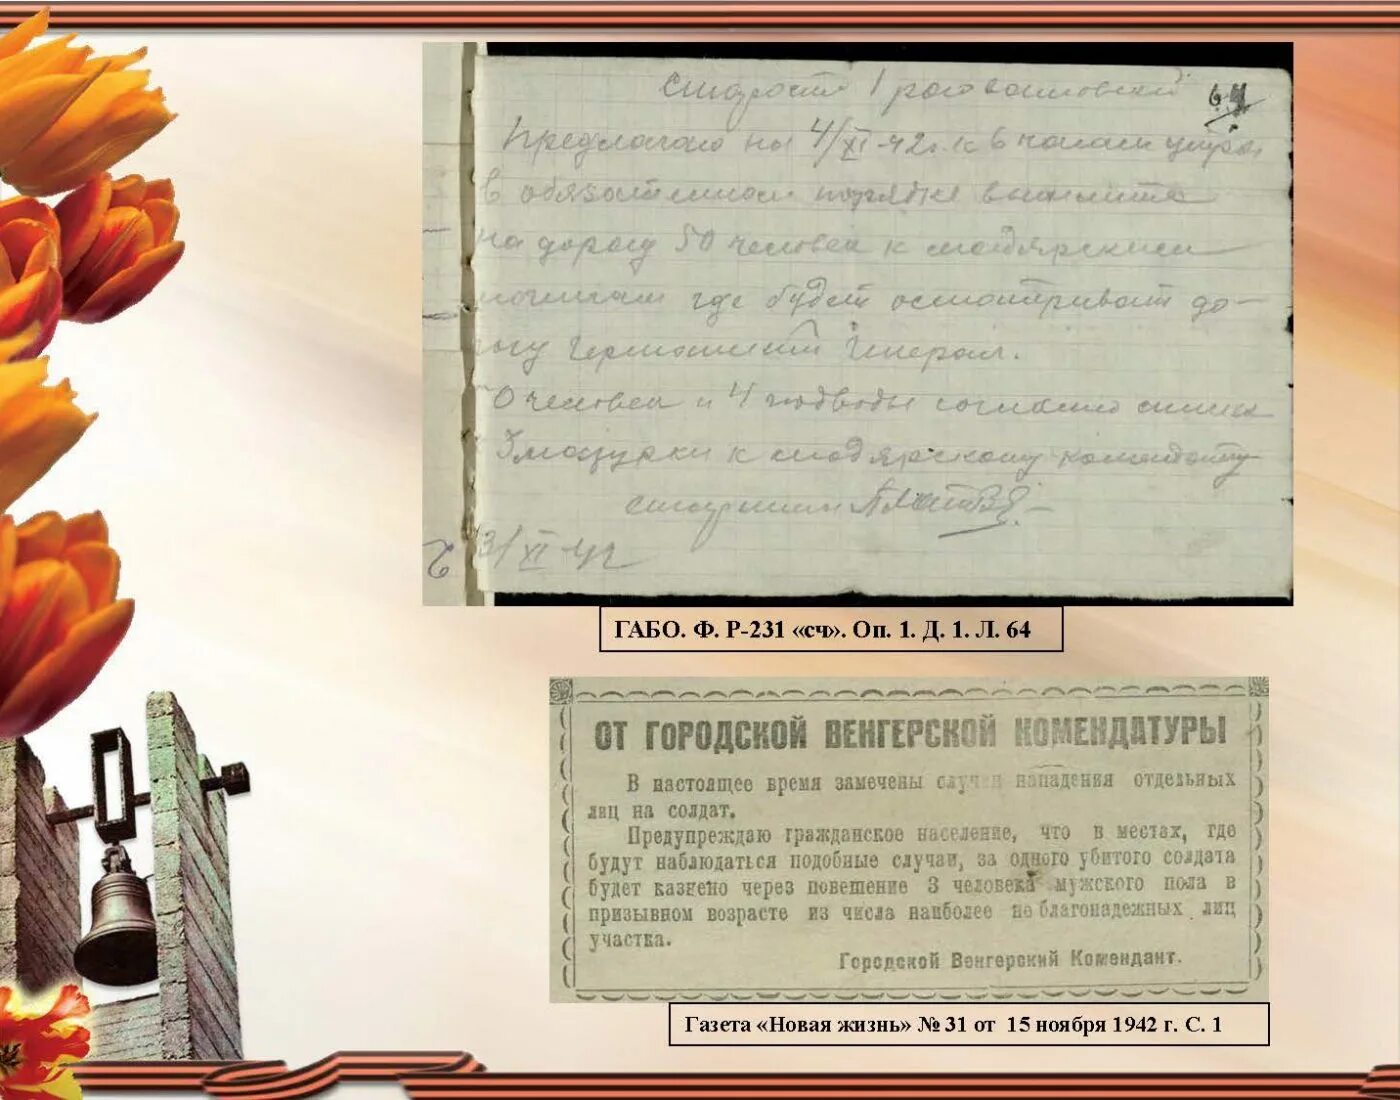 64
Предлагаю на 4/XI-42г. к 6 часам утра
в обязательном порядке
на дорогу 50 человек к мадьярским
могилам где будет осматривать до-
рогу Германский Генерал.
0 человек и 4 подводы согласно
к мадьярскому коменданту
старшина
3/XI-42г
ГАБО. Ф. Р-231 «сч». Оп. 1. Д. 1. Л. 64
ОТ ГОРОДСКОЙ ВЕНГЕРСКОЙ КОМЕНДАТУРЫ
В настоящее время замечены случаи нападения отдельных
лиц на солдат.
Предупреждаю гражданское население, что в местах, где
будут наблюдаться подобные случаи, за одного убитого солдата
будет казнено через повешение 3 человека мужского пола в
призывном возрасте из числа наиболее не благонадежных лиц
участка.
Городской Венгерский Комендант.
Газета «Новая жизнь» № 31 от 15 ноября 1942 г. С. 1